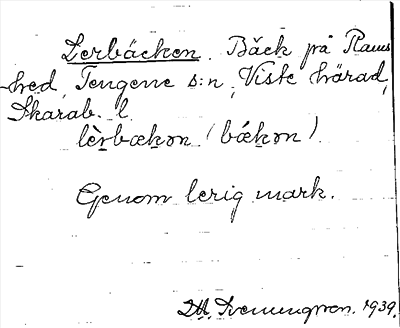 Lerbäcken. Bäck på Rams-
hed, Tengene s:n, Viste härad,
Skarab. l.
lè̱rbæḵən (bǽḵən).
Genom lerig mark.
1939.